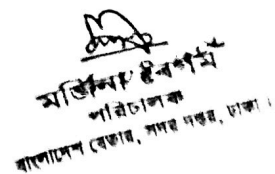 মর্জিনা বেগম
পরিচালক
বাংলাদেশ বেতার, সদর দপ্তর, ঢাকা।